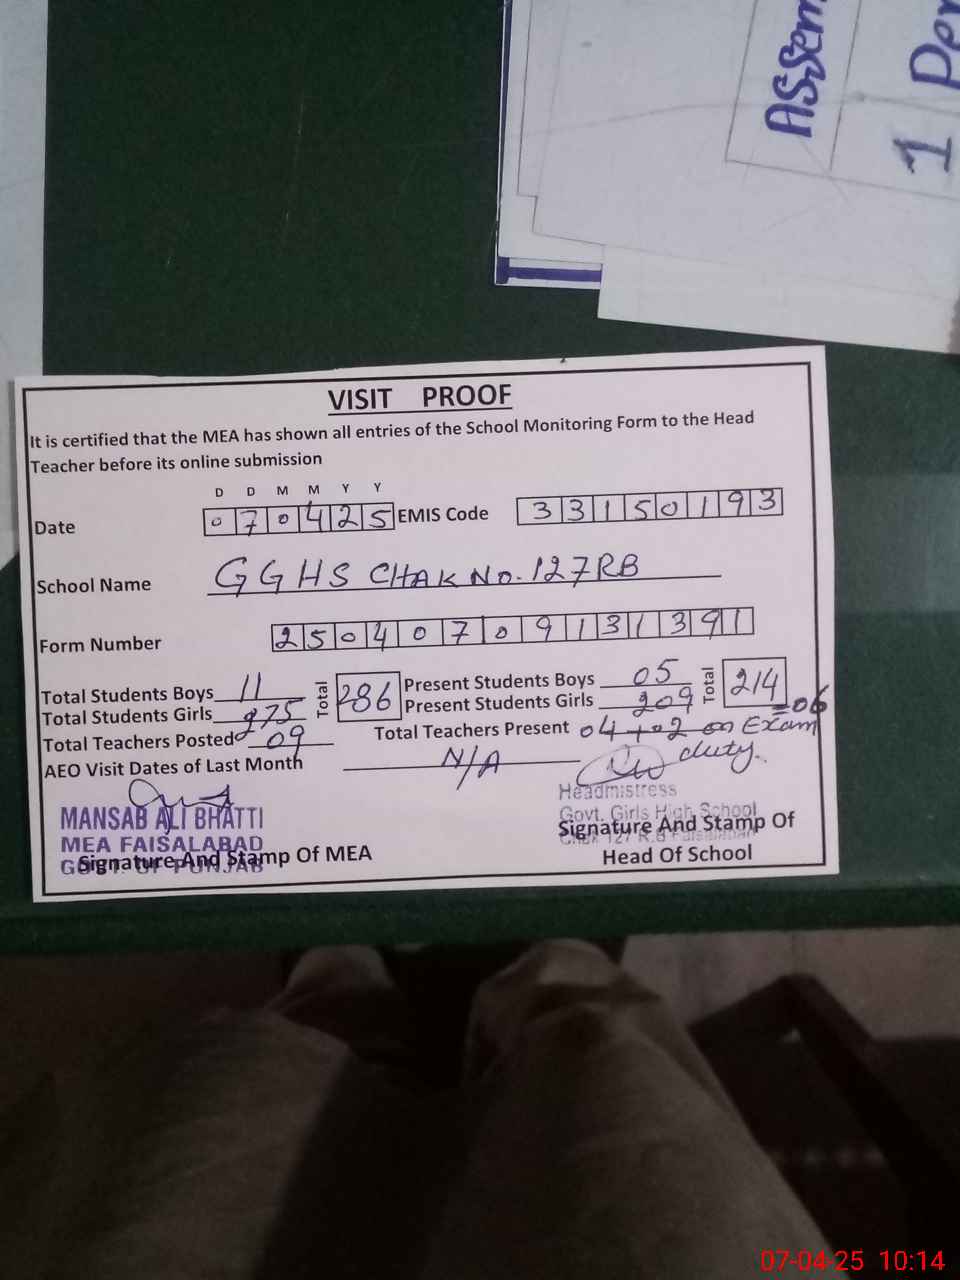 Assem
1 Per
VISIT PROOF
It is certified that the MEA has shown all entries of the School Monitoring Form to the Head
Teacher before its online submission
D D M M Y Y
Date 070425 EMIS Code 33150193
School Name GGHS CHAK No. 127RB
Form Number 25040709131391
Total Students Boys 11 Total 286 Present Students Boys 05 Total 214
Total Students Girls 275 Present Students Girls 209
Total Teachers Posted 09 Total Teachers Present 04+02 on Exam duty. =06
AEO Visit Dates of Last Month N/A
MANSAB ALI BHATTI
MEA FAISALABAD
GOVT. OF PUNJAB
Signature And Stamp Of MEA
Headmistress
Govt. Girls High School
Chak 127 R.B Faisalabad
Signature And Stamp Of
Head Of School
07-04-25 10:14